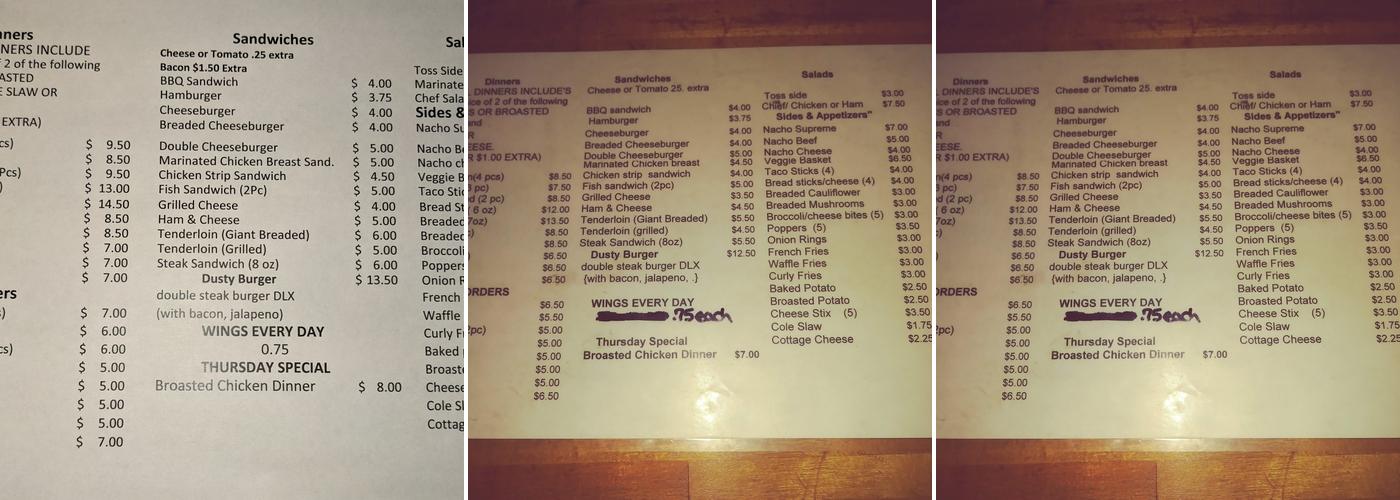 nners
NNERS INCLUDE
f 2 of the following
OASTED
E SLAW OR
EXTRA)
cs) $ 9.50
$ 8.50
Pcs) $ 9.50
) $ 13.00
$ 14.50
$ 8.50
$ 8.50
$ 7.00
$ 7.00
$ 7.00
ers
) $ 7.00
$ 6.00
cs) $ 6.00
$ 5.00
$ 5.00
$ 5.00
$ 5.00
$ 7.00
Sandwiches
Cheese or Tomato .25 extra
Bacon $1.50 Extra
BBQ Sandwich $ 4.00
Hamburger $ 3.75
Cheeseburger $ 4.00
Breaded Cheeseburger $ 4.00
Double Cheeseburger $ 5.00
Marinated Chicken Breast Sand. $ 5.00
Chicken Strip Sandwich $ 4.50
Fish Sandwich (2Pc) $ 5.00
Grilled Cheese $ 4.00
Ham & Cheese $ 5.00
Tenderloin (Giant Breaded) $ 6.00
Tenderloin (Grilled) $ 5.00
Steak Sandwich (8 oz) $ 6.00
Dusty Burger $ 13.50
double steak burger DLX
(with bacon, jalapeno)
WINGS EVERY DAY
0.75
THURSDAY SPECIAL
Broasted Chicken Dinner $ 8.00
Sal
Toss Side
Marinated
Chef Sala
Sides &
Nacho Su
Nacho B
Nacho ch
Veggie B
Taco Stic
Bread St
Breaded
Breaded
Broccoli
Poppers
Onion R
French
Waffle
Curly F
Baked
Broast
Cheese
Cole Sl
Cottag
Dinners
DINNERS INCLUDE'S
ice of 2 of the following
S OR BROASTED
and
R
EESE.
R $1.00 EXTRA)
n(4 pcs) $8.50
3 pc) $7.50
d (2 pc) $8.50
6 oz) $12.00
7oz) $13.50
$8.50
$8.50
$6.50
$6.50
$6.50
ORDERS
$6.50
$5.50
2pc) $5.00
$5.00
$5.00
$5.00
$5.00
$6.50
Sandwiches
Cheese or Tomato 25. extra
BBQ sandwich $4.00
Hamburger $3.75
Cheeseburger $4.00
Breaded Cheeseburger $4.00
Double Cheeseburger $5.00
Marinated Chicken breast $4.50
Chicken strip sandwich $4.00
Fish sandwich (2pc) $5.00
Grilled Cheese $3.50
Ham & Cheese $4.50
Tenderloin (Giant Breaded) $5.50
Tenderloin (grilled) $4.50
Steak Sandwich (8oz) $5.50
Dusty Burger $12.50
double steak burger DLX
(with bacon, jalapeno, .}
WINGS EVERY DAY
.75 each
Thursday Special
Broasted Chicken Dinner $7.00
Salads
Toss side $3.00
Chef/ Chicken or Ham $7.50
Sides & Appetizers"
Nacho Supreme $7.00
Nacho Beef $5.00
Nacho Cheese $4.00
Veggie Basket $6.50
Taco Sticks (4) $4.00
Bread sticks/cheese (4) $4.00
Breaded Cauliflower $3.00
Breaded Mushrooms $3.00
Broccoli/cheese bites (5) $3.00
Poppers (5) $3.50
Onion Rings $3.00
French Fries $3.00
Waffle Fries $3.00
Curly Fries $3.00
Baked Potato $2.50
Broasted Potato $2.50
Cheese Stix (5) $3.50
Cole Slaw $1.75
Cottage Cheese $2.25
Dinners
DINNERS INCLUDE'S
ice of 2 of the following
S OR BROASTED
and
R
EESE.
R $1.00 EXTRA)
n(4 pcs) $8.50
3 pc) $7.50
d (2 pc) $8.50
6 oz) $12.00
7oz) $13.50
$8.50
$8.50
$6.50
$6.50
$6.50
ORDERS
$6.50
$5.50
2pc) $5.00
$5.00
$5.00
$5.00
$5.00
$6.50
Sandwiches
Cheese or Tomato 25. extra
BBQ sandwich $4.00
Hamburger $3.75
Cheeseburger $4.00
Breaded Cheeseburger $4.00
Double Cheeseburger $5.00
Marinated Chicken breast $4.50
Chicken strip sandwich $4.00
Fish sandwich (2pc) $5.00
Grilled Cheese $3.50
Ham & Cheese $4.50
Tenderloin (Giant Breaded) $5.50
Tenderloin (grilled) $4.50
Steak Sandwich (8oz) $5.50
Dusty Burger $12.50
double steak burger DLX
(with bacon, jalapeno, .}
WINGS EVERY DAY
.75 each
Thursday Special
Broasted Chicken Dinner $7.00
Salads
Toss side $3.00
Chef/ Chicken or Ham $7.50
Sides & Appetizers"
Nacho Supreme $7.00
Nacho Beef $5.00
Nacho Cheese $4.00
Veggie Basket $6.50
Taco Sticks (4) $4.00
Bread sticks/cheese (4) $4.00
Breaded Cauliflower $3.00
Breaded Mushrooms $3.00
Broccoli/cheese bites (5) $3.00
Poppers (5) $3.50
Onion Rings $3.00
French Fries $3.00
Waffle Fries $3.00
Curly Fries $3.00
Baked Potato $2.50
Broasted Potato $2.50
Cheese Stix (5) $3.50
Cole Slaw $1.75
Cottage Cheese $2.25